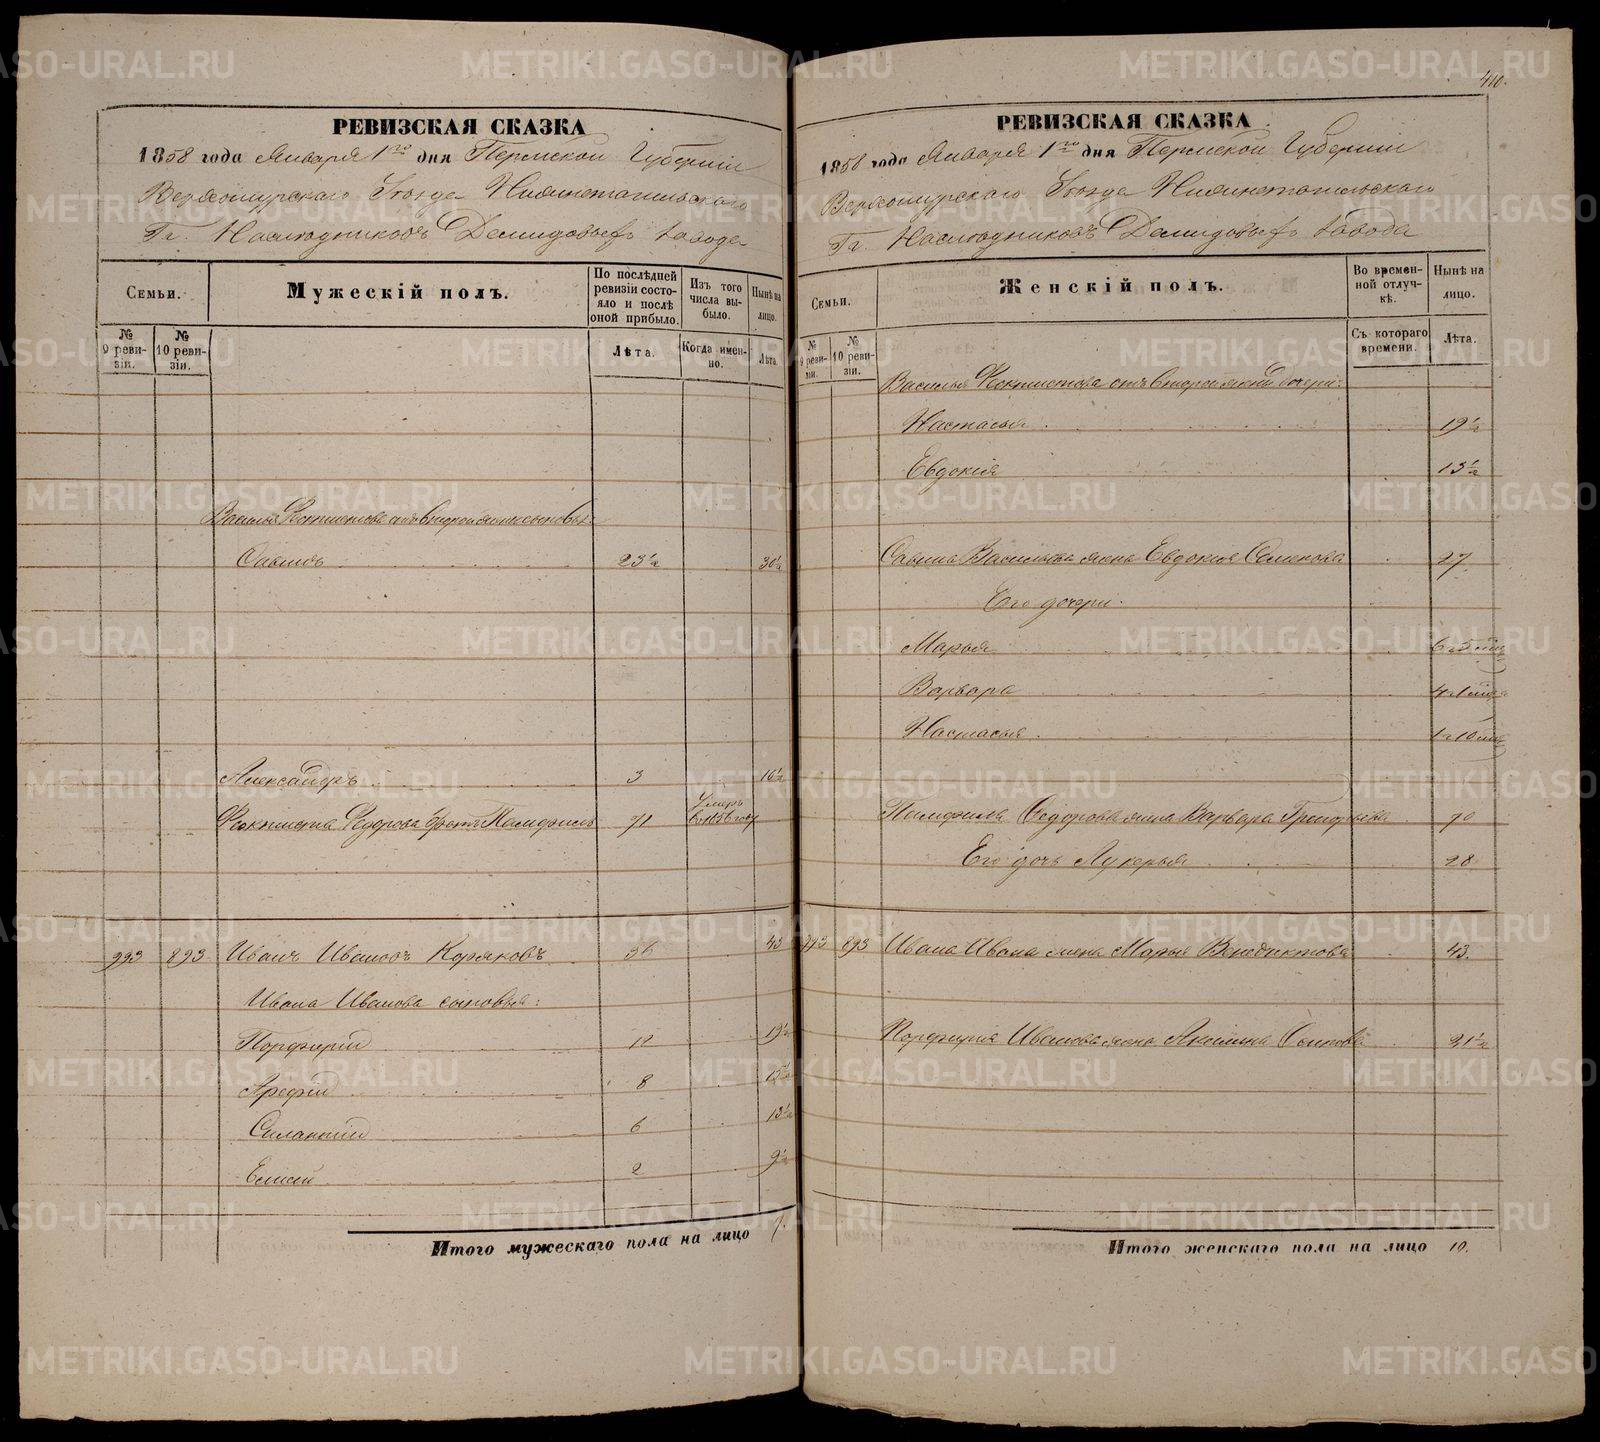 РЕВИЗСКАЯ СКАЗКА
1858 года Января 1го дня Пермской Губернiи
Верхотурскаго Уѣзда Нижнетагильскаго
Гг. Наслѣдниковъ Демидовыхъ Завода
Семьи.
Мужескiй полъ.
По послѣдней ревизiи состояло и послѣ оной прибыло.
Изъ того числа выбыло.
Нынѣ на лицо.
№ 9 ревизiи.
№ 10 ревизiи.
Лѣта.
Когда именно.
Лѣта.
Василья Фектистова отъ второй жены сыновья:
Савинъ 23½ 30½
Александръ 3 10½
Фектиста Федорова братъ Памфилъ 71 Умеръ въ 1856 году
993 893 Иванъ Ивановъ Коряковъ 36 43
Ивана Иванова сыновья:
Порфирiй 12 19½
Арефiй 8 15½
Силантiй 6 13½
Елисей 2 9½
Итого мужескаго пола на лицо 7.
410.
РЕВИЗСКАЯ СКАЗКА
1858 года Января 1го дня Пермской Губернiи
Верхотурскаго Уѣзда Нижнетагильскаго
Гг. Наслѣдниковъ Демидовыхъ Завода
Семьи.
Женскiй полъ.
Во временной отлучкѣ.
Нынѣ на лицо.
№ 9 ревизiи.
№ 10 ревизiи.
Съ котораго времени.
Лѣта.
Василья Фектистова отъ второй жены дочери:
Настасья 19½
Евдокiя 13½
Савина Васильева жена Евдокiя Семенова 27
Его дочери:
Марья
Варвара
Настасья
Памфила Федорова жена Варвара 70
Его дочь Лукерья 28
993 893 Ивана Иванова жена Марья Венедиктова 43.
Порфирiя Иванова жена Акилина 21½
Итого женскаго пола на лицо 10.
METRIKI.GASO-URAL.RU